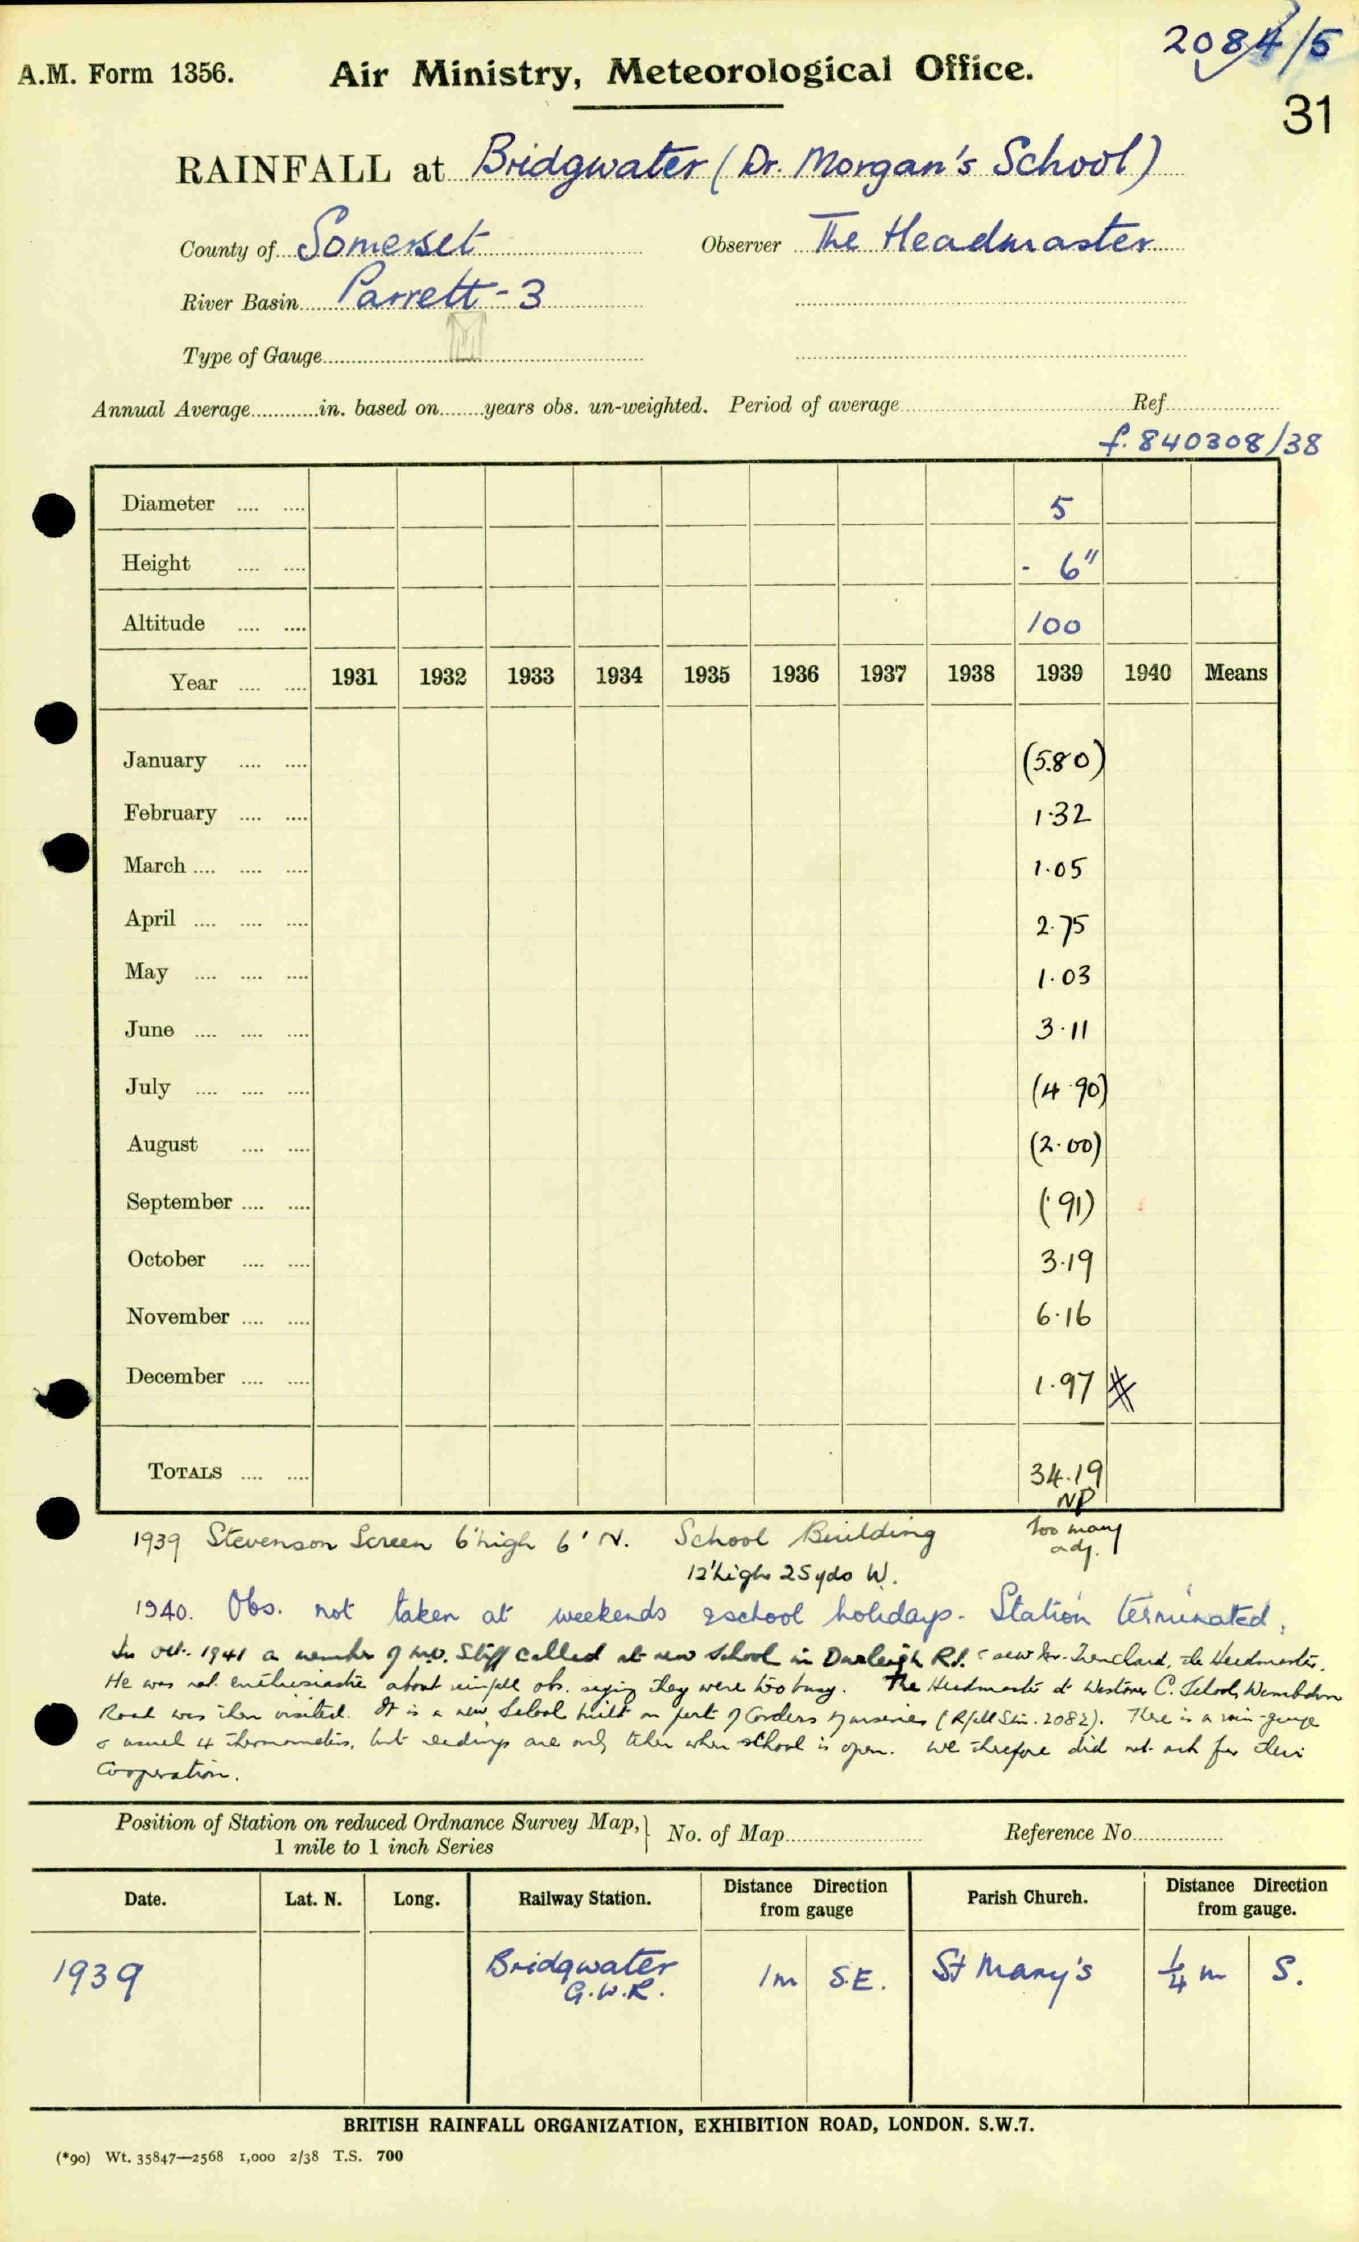 2084/5
A.M. Form 1356. Air Ministry, Meteorological Office.
31
RAINFALL at Bridgwater (Dr. Morgan's School)
County of Somerset Observer The Headmaster
River Basin Parrett - 3
Type of Gauge
Annual Average in. based on years obs. un-weighted. Period of average Ref
f. 840308/38
Diameter 5
Height - 6"
Altitude 100
Year 1931 1932 1933 1934 1935 1936 1937 1938 1939 1940 Means
January (5.80)
February 1.32
March 1.05
April 2.75
May 1.03
June 3.11
July (4.90)
August (2.00)
September (.91)
October 3.19
November 6.16
December 1.97
TOTALS 34.19
NP
1939 Stevenson Screen 6' high 6' N. School Building too many
12' high 25 yds W. adj.
1940. Obs. not taken at weekends & school holidays. Station terminated.
In Oct. 1941 a member of M.O. Staff called at new School in Durleigh Rd. & saw Mr. Trenchard, the Headmaster.
He was not enthusiastic about rainfall obs. saying they were too busy. The Headmaster at Westover C. School, Wembdon
Road was then visited. It is a new School built on part of Corders Nurseries (R/fall Stn. 2082). There is a rain-gauge
& usual 4 thermometers, but readings are only taken when school is open. We therefore did not ask for their
Cooperation.
Position of Station on reduced Ordnance Survey Map, No. of Map Reference No
1 mile to 1 inch Series
Date. Lat. N. Long. Railway Station. Distance Direction from gauge Parish Church. Distance Direction from gauge.
1939 Bridgwater 1m S.E. St Mary's 1/4 m S.
G.W.R.
BRITISH RAINFALL ORGANIZATION, EXHIBITION ROAD, LONDON. S.W.7.
(*90) Wt. 35847—2568 1,000 2/38 T.S. 700